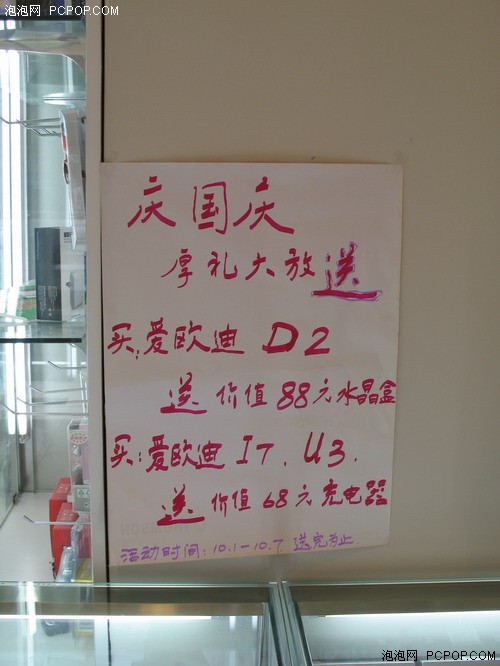 泡泡网 PCPOP.COM
泡泡网 PCPOP.COM
庆国庆
厚礼大放送
买:爱欧迪 D2
送 价值88元水晶盒
买:爱欧迪 I7. U3.
送 价值68元充电器
活动时间:10.1-10.7 送完为止
泡泡网 PCPOP.COM
泡泡网 PCPOP.COM